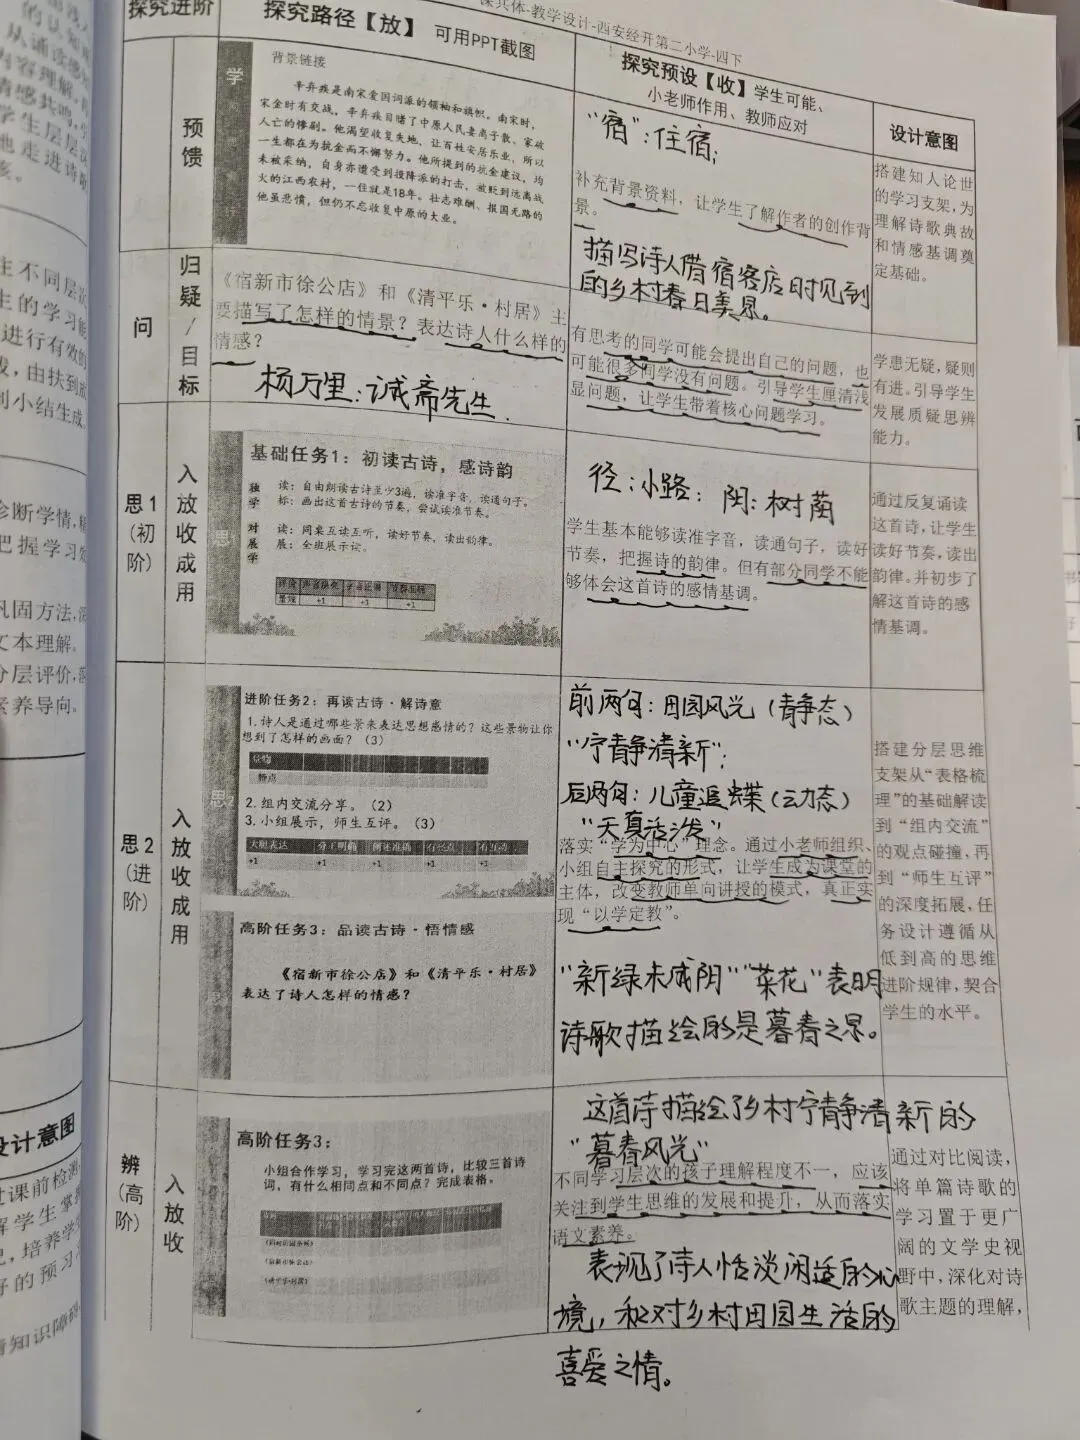 课共体-教学设计-西安经开第二小学-四下
探究进阶
探究路径【放】 可用PPT截图
探究预设【收】学生可能、
小老师作用、教师应对
设计意图
预馈
学
背景链接
辛弃疾是南宋爱国词派的领袖和旗帜。南宋时，
宋金时有交战。辛弃疾目睹了中原人民妻离子散、家破
人亡的惨剧。他渴望收复失地、让百姓安居乐业，所以
一生都在为抗金而不懈努力。他所提到的抗金建议，均
未被采纳，自身亦遭受到投降派的打击，被贬到远离战
火的江西农村，一住就是18年。壮志难酬、报国无路的
他虽悲愤，但仍不忘收复中原的大业。
“宿”：住宿；
补充背景资料，让学生了解作者的创作背
景。
描写诗人借宿客店时见到
的乡村春日美景。
搭建知人论世
的学习支架，为
理解诗歌典故
和情感基调奠
定基础。
问
归疑/目标
《宿新市徐公店》和《清平乐·村居》主
要描写了怎样的情景？表达诗人什么样的
情感？
杨万里：诚斋先生.
有思考的同学可能会提出自己的问题，也
可能很多同学没有问题。引导学生厘清浅
显问题，让学生带着核心问题学习。
学患无疑，疑则
有进。引导学生
发展质疑思辨
能力。
思1
(初
阶)
入放收成用
思
基础任务1：初读古诗，感诗韵
独学
读：自由朗读古诗至少3遍，读准字音，读通句子。
标：画出这首古诗的节奏，尝试读准节奏。
对展学
读：同桌互读互听，读好节奏，读出韵律。
展：全班展示读。
+1 +3 +1
径：小路； 阴：树荫
学生基本能够读准字音，读通句子，读好
节奏，把握诗的韵律。但有部分同学不能
够体会这首诗的感情基调。
通过反复诵读
这首诗，让学生
读好节奏，读出
韵律。并初步了
解这首诗的感
情基调。
思2
(进
阶)
入放收成用
思2
进阶任务2：再读古诗·解诗意
1.诗人是通过哪些景来表达思想感情的？这些景物让你
想到了怎样的画面？（3）
景物
特点
2.组内交流分享。（2）
3.小组展示，师生互评。（3）
大胆表达 分工明确 阐述准确 有亮点 有互动
+1 +1 +1 +1 +1
高阶任务3：品读古诗·悟情感
《宿新市徐公店》和《清平乐·村居》
表达了诗人怎样的情感？
前两句：田园风光（静态）
“宁静清新”；
后两句：儿童追蝶（动态）
“天真活泼”
落实“学为中心”理念。通过小老师组织、
小组自主探究的形式，让学生成为课堂的
主体，改变教师单向讲授的模式，真正实
现“以学定教”。
“新绿未成阴”“菜花”表明
诗歌描绘的是暮春之景。
搭建分层思维
支架从“表格梳
理”的基础解读
到“组内交流”
的观点碰撞，再
到“师生互评”
的深度拓展，任
务设计遵循从
低到高的思维
进阶规律，契合
学生的水平。
辨
(高
阶)
入放收
高阶任务3：
小组合作学习，学习完这两首诗，比较三首诗
词，有什么相同点和不同点？完成表格。
这首诗描绘了乡村宁静清新的
“暮春风光”
不同学习层次的孩子理解程度不一，应该
关注到学生思维的发展和提升，从而落实
语文素养。
表现了诗人恬淡闲适的心
境，和对乡村田园生活的
喜爱之情。
通过对比阅读，
将单篇诗歌的
学习置于更广
阔的文学史视
野中，深化对诗
歌主题的理解，